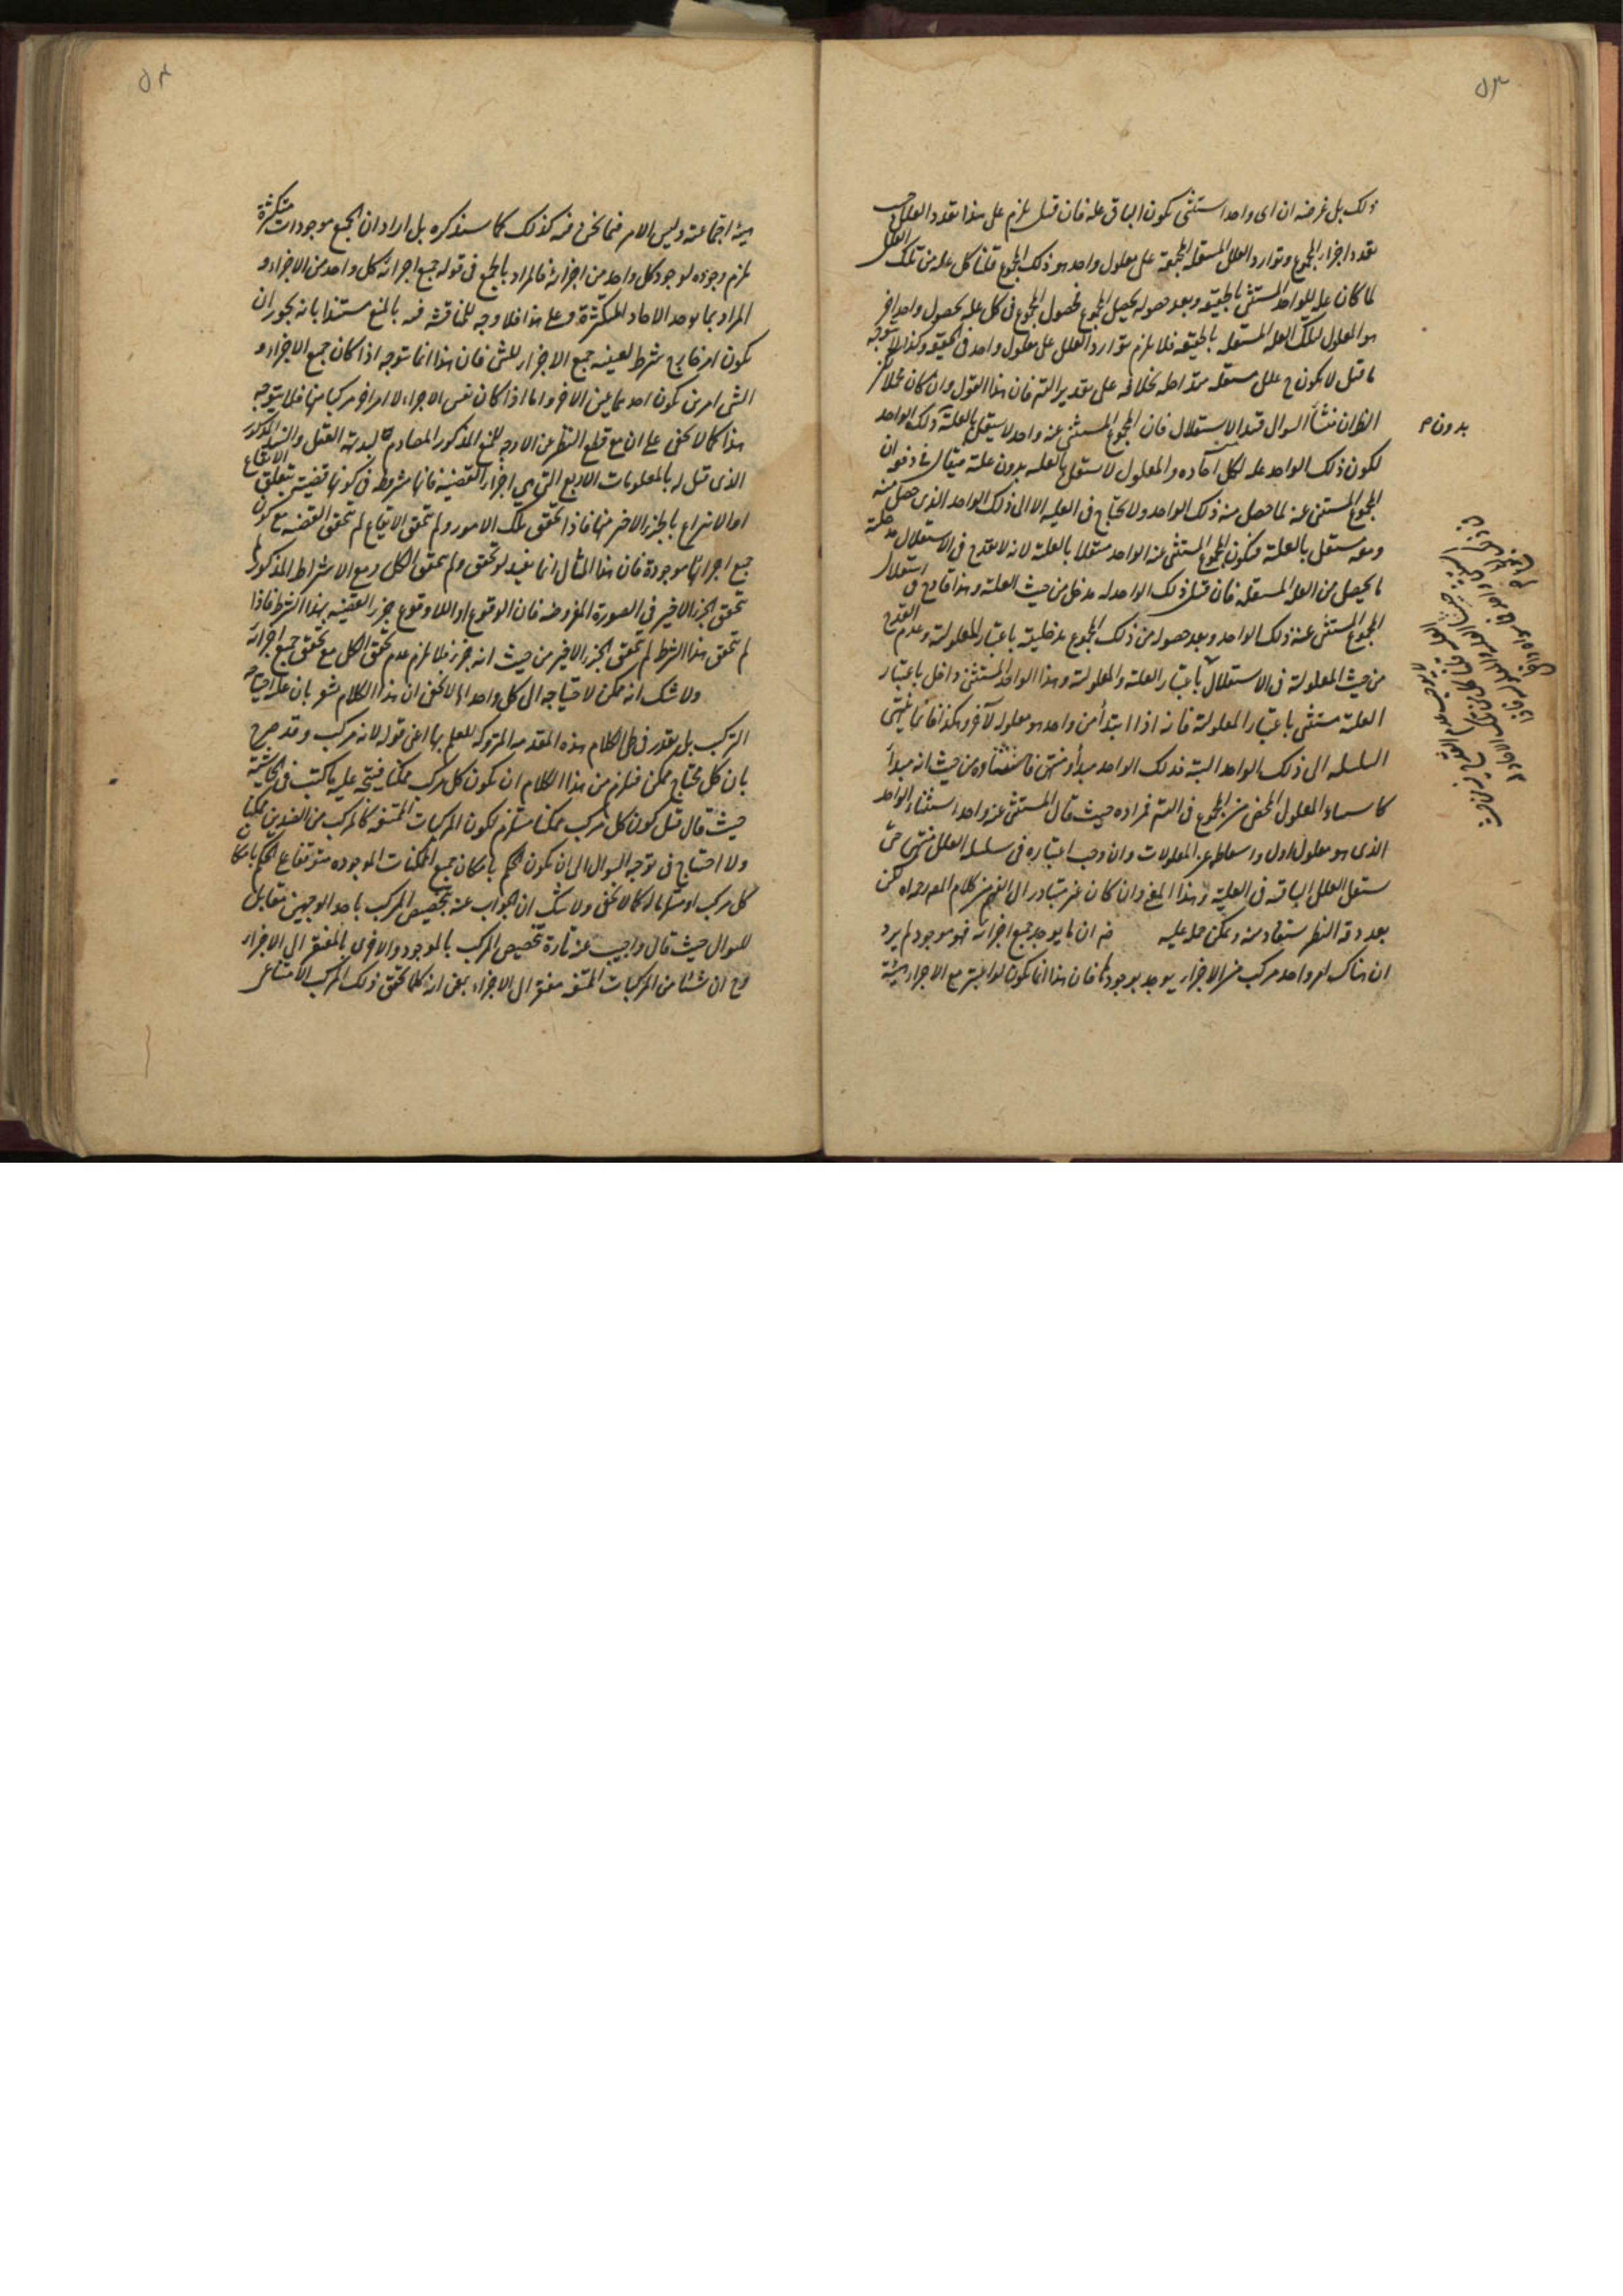 ٥٣
ذلك بل غرضه ان اى واحد استثنى يكون الباقى علة فان قيل يلزم على هذا تعدد العلل حسب
تعدد اجزاء المجموع وتوارد العلل المستقلة المجتمعة على معلول واحد هو ذلك المجموع قلنا كل علة من تلك العلل
لما كان علة للواحد المستثنى بالحقيقة وبعد حصوله يحصل المجموع فحصول المجموع فى كل علة بحصول واحد اخر
هو المعلول لتلك العلة المستقلة بالحقيقة فلا يلزم توارد العلل على معلول واحد فى الحقيقة وكذا لا يتوجه
ما قيل لا يكون ح علل مستقلة متداخلة بخلافه على تقدير التم فان هذا القول وان كان محلا لكن
الظ ان منشأ السوال قيد الاستقلال فان المجموع المستثنى عنه واحد لا يستقل بالعلية ذلك الواحد
لكون ذلك الواحد علة لكل آحاده والمعلول لا يستقل بالعلية بدون علته فيقال فى دفعه ان
المجموع المستثنى عنه لما حصل منه ذلك الواحد ولا يحتاج فى العلية الا الى ذلك الواحد الذى حصل منه
ومعه يستقل بالعلية فيكون المجموع المستثنى عنه الواحد مستقلا بالعلية لانه لا يقدح فى الاستقلال مدخلية
ما يحصل من العلة المستقلة فان قيل ذلك الواحد له مدخل من حيث العلية وهذا قادح فى استقلال
المجموع المستثنى عنه ذلك الواحد وبعد حصوله من ذلك المجموع مدخليته باعتبار المعلولية وعدم القدح
من حيث المعلولية فى الاستقلال باعتبار العلية والمعلولية وهذا الواحد المستثنى داخل باعتبار
العلية مستثنى باعتبار المعلولية فانه اذا ابتدأ من واحد هو معلول لآخر وهكذا فانما ينتهى
السلسلة الى ذلك الواحد البتة فذلك الواحد مبدأ ومنتهى فاستثناؤه من حيث انه مبدأ
كاسناد المعلول المحض من المجموع فى التم فمراده حيث قال المستثنى عنه واحد استثناء الواحد
الذى هو معلول اول واسقاطه عن المعلولات وان وجب اعتباره فى سلسلة العلل منتهى حتى
يستقل العلل الباقية فى العلية وهذا المعنى وان كان غير متبادر الى الفهم من كلام المص رحمه الله لكن
بعد دقة النظر يستفاد منه ويمكن حمله عليه فيه ان ما يوجد جميع اجزائه فهو موجود لم يرد
ان هناك امر واحد مركب من الاجزاء يوجد بوجودها فان هذا انما يكون لو اعتبر مع الاجزاء هيئة
بدون م
٥٤
هيئة اجتماعية وليس الامر فيما نحن فيه كذلك كما سنذكره بل اراد ان الجميع موجودات متكثرة
يلزم وجوده لوجود كل واحد من اجزائه فالمراد بالجميع فى قوله جميع اجزائه كل واحد من الاجزاء و
المراد بما يوجد الآحاد المتكثرة وعلى هذا فلا وجه للمناقشة فيه بالمنع مستندا بانه يجوز ان
يكون امر خارج شرط لعينية جميع الاجزاء للشئ فان هذا انما يتوجه اذا كان جميع الاجزاء و
الشئ امرين يكون احدهما عين الاخر واما اذا كان نفس الاجزاء لا امرا اخر مركبا منها فلا يتوجه
هذا كما لا يخفى على ان مع قطع النظر عن الا وجه للمنع المذكور المصادم لبديهة العقل والسند المذكور
الذى قيل له بالمعلومات الاربع التى هى اجزاء القضية فانها مشروطة فى كونها قضية بتعلق الايقاع
او الانتزاع بالجزء الاخير منها فاذا تحقق تلك الامور ولم يتحقق الايقاع لم يتحقق القضية مع كون
جميع اجزائها موجودة فان هذا المثال انما يفيد لو تحقق ولم يتحقق الكل ومع الاشتراط المذكور لا
يتحقق الجزء الاخير فى الصورة المفروضة فان الوقوع او اللا وقوع جزء القضية بهذا الشرط فاذا
لم يتحقق هذا الشرط لم يتحقق الجزء الاخير من حيث انه جزء فلا يلزم عدم تحقق الكل مع تحقق جميع اجزائه
ولا شك انه ممكن لاحتياجه الى كل واحد الخ لا يخفى ان هذا الكلام مشعر بان علة احتياجه
التركيب بل يقدر فى ظل الكلام هذه المقدمة المتروكة للعلم بها اعنى قوله لانه مركب وقد صرح
بان كل محتاج ممكن فيلزم من هذا الكلام ان يكون كل مركب ممكنا فيتجه عليه ما كتب فى الحاشية
حيث قال قيل كون كل مركب ممكنا مستلزم لكون المركبات الممتنعة كالمركب من الضدين ممكنا
ولا احتياج فى توجه السوال الى ان يكون الحكم بامكان جميع الممكنات الموجودة متفرعا على الحكم بامكان
كل مركب كما لا يخفى ولا شك ان الجواب عنه بتخصيص المركب باحد الوجهين مقابل
للسوال حيث قال واجيب عنه تارة بتخصيص المركب بالموجود والاخرى بالمفتقر الى الاجزاء
ومع ان شيئا من المركبات الممتنعة مفتقر الى الاجزاء بمعنى انه كلما تحقق ذلك المركب الامتناعى